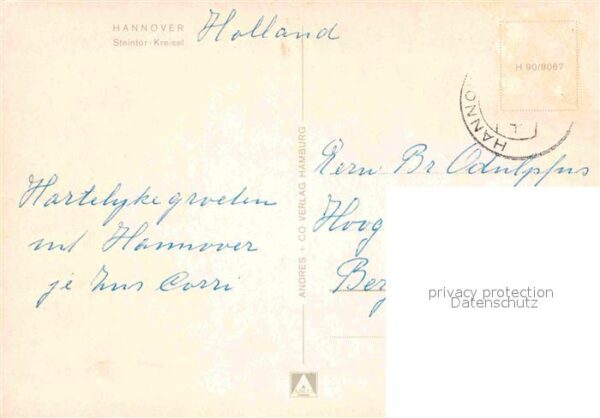 HANNOVER
Steintor-Kreisel
Holland
H 90/8067
HANNO
Hartelyke groeten
uit Hannover
je zus Corri
ANDRES + CO VERLAG HAMBURG
Eerw Br Odulpfus
Hoog
Berg
privacy protection
Datenschutz